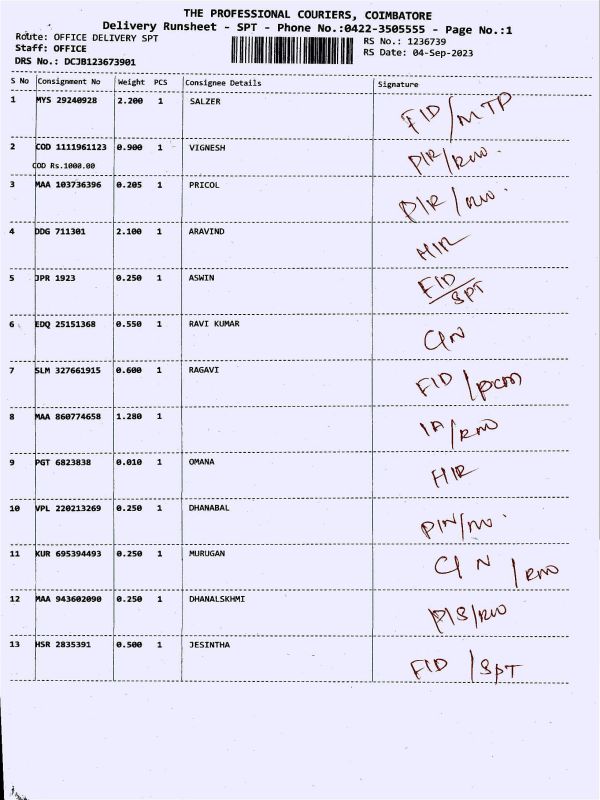 THE PROFESSIONAL COURIERS, COIMBATORE
Delivery Runsheet - SPT - Phone No.:0422-3505555 - Page No.:1
Route: OFFICE DELIVERY SPT
RS No.: 1236739
Staff: OFFICE
RS Date: 04-Sep-2023
DRS No.: DCJB123673901
S No Consignment No Weight PCS Consignee Details Signature
1 MYS 29240928 2.200 1 SALZER FID/MTP
2 COD 1111961123 0.900 1 VIGNESH PIR/
COD Rs.1000.00
3 MAA 103736396 0.205 1 PRICOL PIR/
4 DDG 711301 2.100 1 ARAVIND HIR
5 JPR 1923 0.250 1 ASWIN FID/SPT
6 EDQ 25151368 0.550 1 RAVI KUMAR CIN
7 SLM 327661915 0.600 1 RAGAVI FID/PCM
8 MAA 860774658 1.280 1
9 PGT 6823838 0.010 1 OMANA HIR
10 VPL 220213269 0.250 1 DHANABAL PIN/
11 KUR 695394493 0.250 1 MURUGAN CIN
12 MAA 943602090 0.250 1 DHANALSKHMI PIS/
13 HSR 2835391 0.500 1 JESINTHA FID/SPT